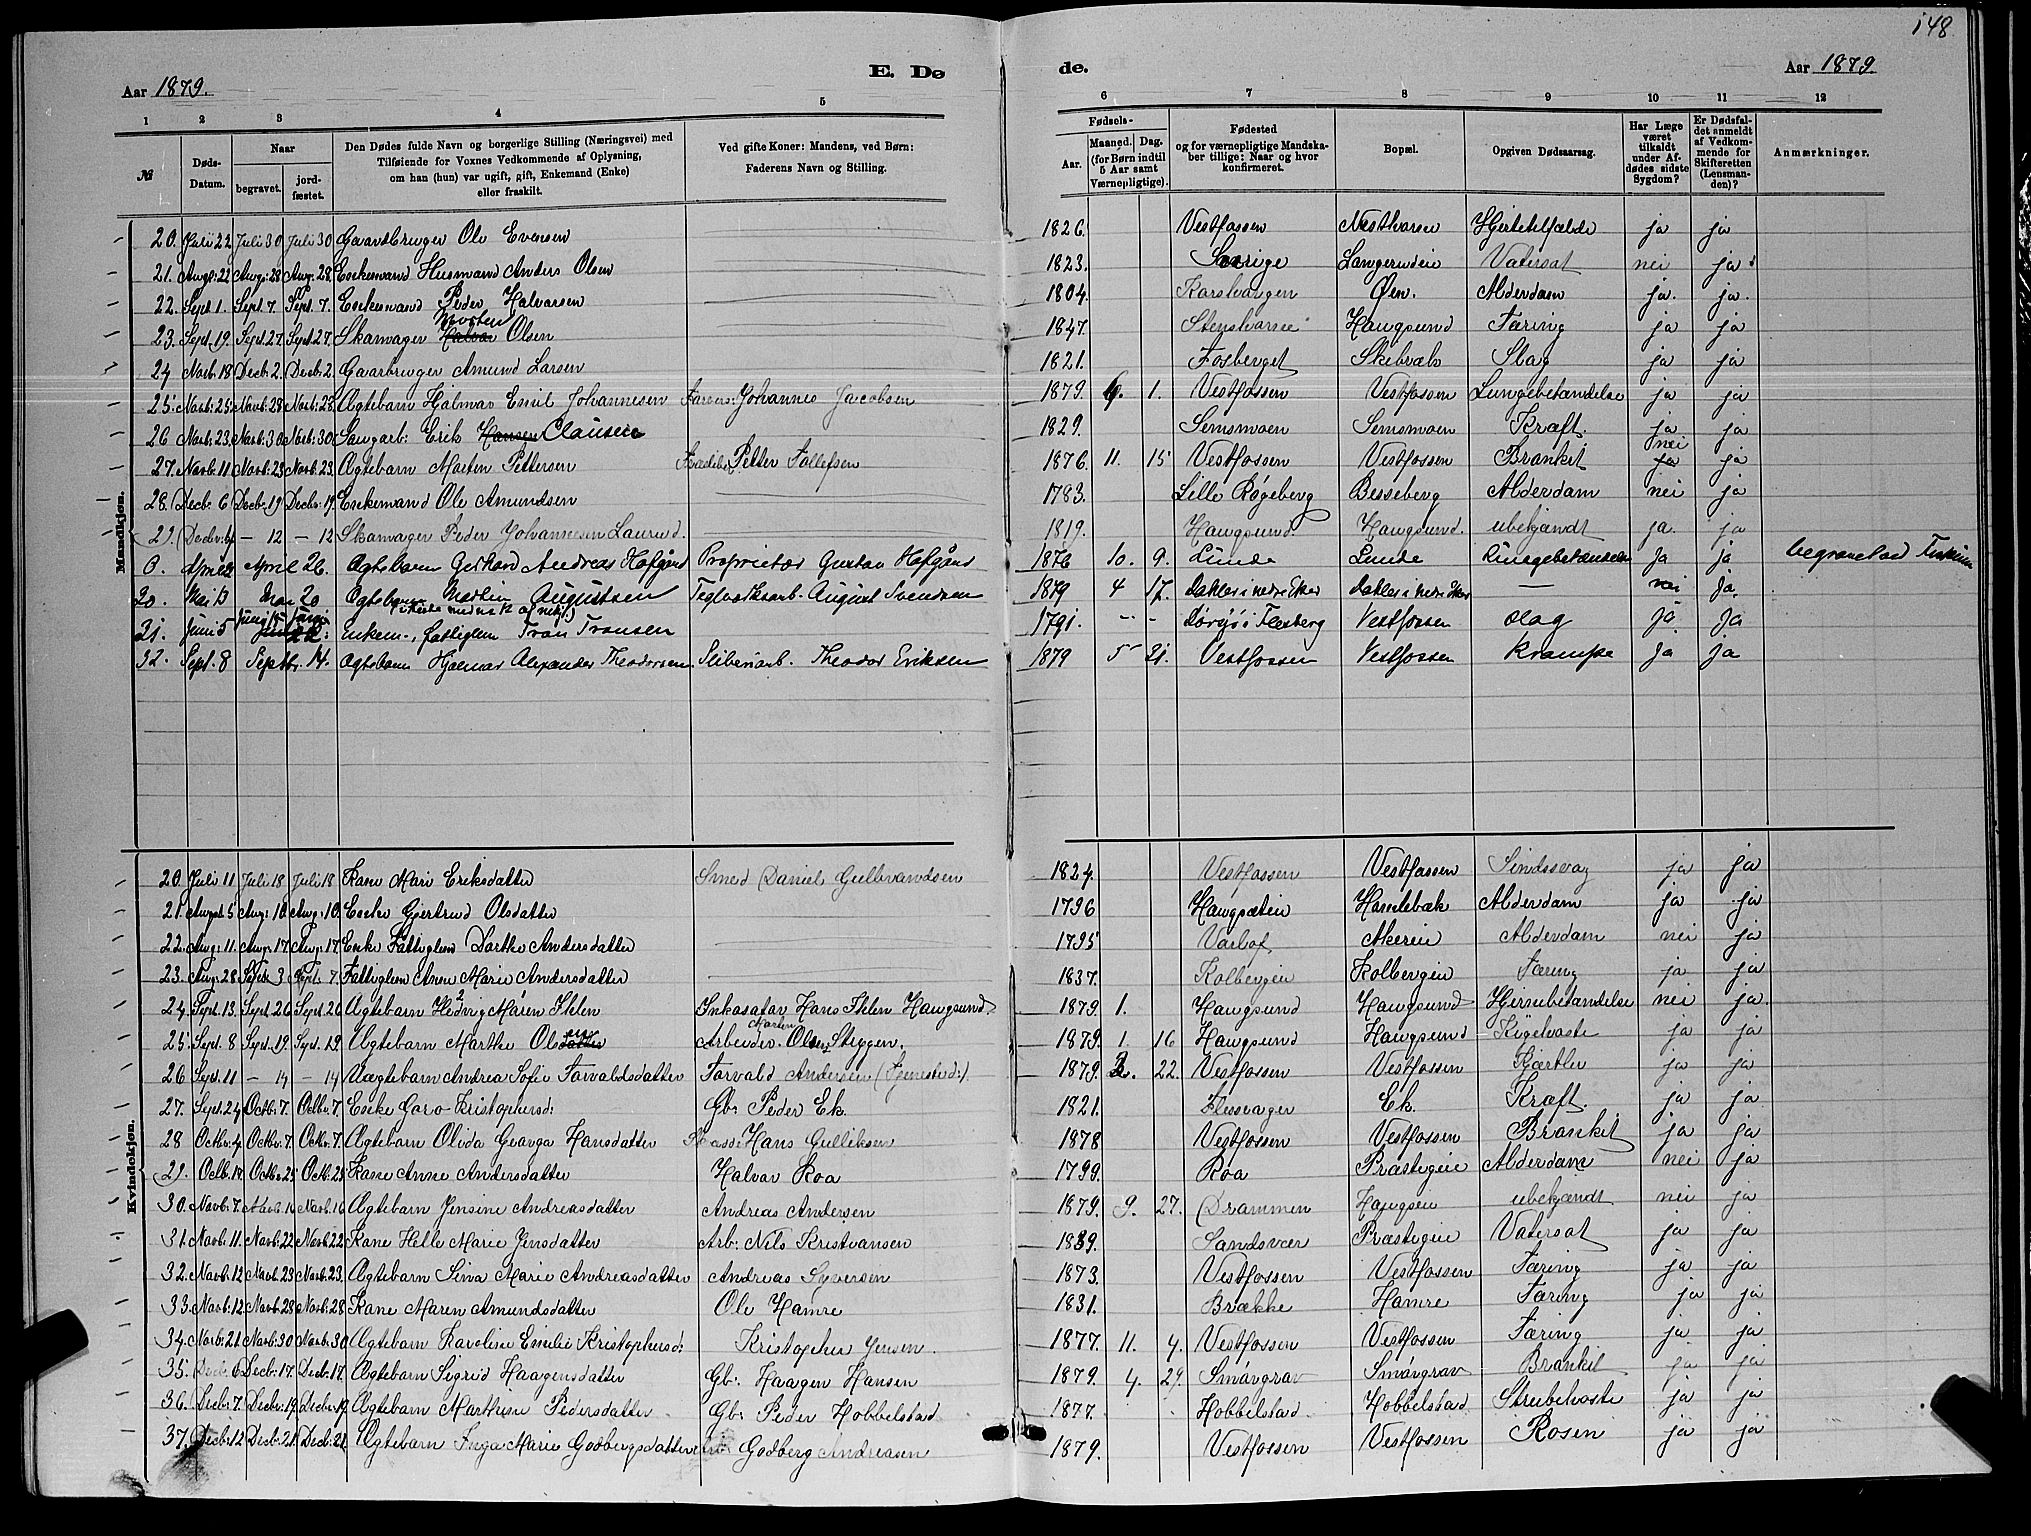 148
E. Dø de.
Aar 1879. Aar 1879.
1 2 3 4 5 6 7 8 9 10 11 12
№
Døds-Datum.
Naar begravet. jordfæstet.
Den Dødes fulde Navn og borgerlige Stilling (Næringsvei) med Tilføiende for Voxnes Vedkommende af Oplysning, om han (hun) var ugift, gift, Enkemand (Enke) eller fraskilt.
Ved gifte Koner: Mandens, ved Børn: Faderens Navn og Stilling.
Fødsels- Aar. Maaned. Dag. (for Børn indtil 5 Aar samt Værnepligtige).
Fødested og for værnepligtige Mandskaber tillige: Naar og hvor konfirmeret.
Bopæl.
Opgiven Dødsaarsag.
Har Læge været tilkaldt under Afdødes sidste Sygdom?
Er Dødsfaldet anmeldt af Vedkommende for Skifteretten (Lensmanden)?
Anmærkninger.
Mandkjøn.
20. Juli 22 Juli 30 Juli 30 Gaardbruger Ole Evensen 1826. Vestfossen Hjertetilfælde ja ja
21. Aug: 22 Aug: 28 Aug: 28. Enkemand Husmand Anders Olsen 1823. Langerudeie Vatersot nei ja
22. Sept 1. Sept. 7. Sept. 7. Enkemand Peder Halvorsen 1804. Øen. Alderdom ja. ja.
23. Sept. 19. Sept. 27 Sept. 27. Skomager Morten Olsen 1847. Haugsund Tæring ja ja
24 Novb. 18 Decb. 2. Decb. 2. Gaarbruger Amund Larsen 1821. Fosberget Skebræk Slag ja ja
25. Novb: 25 Novb: 28 Novb: 28. Ægtebarn Hjalmar Emil Johannesen Johannes Jacobsen 1879. 1. Vestfossen Vestfossen Lungebetændelse ja ja
26 Novb: 23. Novb: 30 Novb: 30 Erik Clausen 1829. Semsmoen Semsmoen Kræft. ja ja
27. Novb. 11 Novb. 23 Novb. 23. Ægtebarn Morten Pettersen Petter Tollefsen 1876. 11. 15 Vestfossen Vestfossen Bronkit nei ja
28. Decb: 6 Decb. 19 Decb. 19. Enkemand Ole Amundsen 1783. Lille Røgeberg Besseberg Alderdom nei ja
29. – 12 – 12 Skomager Peder Johannesen Laurud. 1819. Haugsund. Haugsund. ubekjændt ja. ja
April April 26. Ægtebarn Gerhard Andreas Hofgård Proprietær Gustav Hofgård 1876 10. 9. Lunde Lunde Lungebetændelse ja ja begravet ved Fiskum
30. Mai 13 Mai 20 Ægtebarn Martin Augustsen Teglverksarb. August Svendsen 1879 4 17. — nei ja.
31. Juni 5 Enkem., fattiglem Tron Tronsen 1791. – – Flesberg Vestfossen slag ja ja
32. Sept. 8 Septbr. 14. Ægtebarn Hjalmar Alexander Theodorsen Sliberiarb. Theodor Eriksen 1879 5 21. Vestfossen Vestfossen Krampe ja ja
Kvindekjøn.
20. Juli 11 Juli 18 Juli 18 Kone Mari Eriksdatter Smed Daniel Gulbrandsen 1824. Vestfossen Vestfossen Sindssvag ja ja
21. Augst. 5 Aug: 10 Aug: 10. Enke Gjertrud Olsdatter 1796 Haugsæteie Hamlebæk Alderdom ja ja
22. Aug: 11. Aug: 17 Aug: 17. Enke Fattiglem Dorthe Andersdatter 1795 Akereie Alderdom nei ja
23. Aug: 28 Septb. 3 Sept. 7. Fattiglem Anne Marie Andersdatter 1837. Kolbergeie Kolbergeie Tæring ja ja
24. Sept. 13. Sept. 20 Sept. 20 Ægtebarn Hedvig Maren Iklen Inkasator Hans Iklen Haugsund 1879. 1. Haugsund Haugsund Hjernebetændelse nei ja.
25. Sept. 8 Sept. 19 Sept. 19 Ægtebarn Marthe Olsen Arbeider. Morten Olsen Styggen. 1879. 1. 16 Haugsund Haugsund Kighoste ja ja
26 Sept. 11 – 14 – 14 Uægtebarn Andrea Sofie Torvaldsdatter Torvald Andersen 1879. 2. 22. Vestfossen Vestfossen Kjertler ja ja
27. Sept. 24 Octb. 7. Octbr. 7. Enke Goro Kristophersd: Gb: Peder Ek. 1821. Ek. Kræft. ja ja
28 Octbr. 4. Octbr. 7. Octbr. 7. Ægtebarn Olida Georga Hansdatter Hans Gulliksen 1878 Vestfossen Vestfossen Bronkit ja ja
29. Octb. 14. Octb. 25 Octb. 25 Kone Anne Andersdatter Halvor Roa 1799. Roa Præstegeie Alderdom nei ja
30. Novb. 7. Novb. 16 Novb. 16 Ægtebarn Jensine Andreasdatter Andreas Andersen 1879. 9. 27. Drammen ubekjændt nei ja
31. Novb. 11. Novb. 22 Novb. 22 Kone Helle Marie Jensdatter Arb: Nils Kristiansen 1839. Sandsvær Præstegeie Vatersot ja ja
32. Novb. 12 Novb. 23 Novb. 23. Ægtebarn Sina Marie Andreasdatter Andreas Syversen 1873. Vestfossen Vestfossen Tæring ja ja
33. Novb. 12. Novb. 28 Novb. 28 Kone Maren Amundsdatter Ole Hamre 1831. Brække Hamre Tæring ja ja
34. Novb. 21. Novb. 30 Novb. 30 Ægtebarn Karoline Emilie Kristophersd: Kristopher Jensen. 1877. 11. 4. Vestfossen Vestfossen Tæring ja ja
35. Decb. 6 Decb. 17. Decb. 17. Ægtebarn Sigrid Haagensdatter Gb. Haagen Hansen 1879. 4. 29. Smørgrav Smørgrav Bronkit ja ja
36. Decb. 7. Decb. 19 Decb. 19. Ægtebarn Mathisse Pedersdatter Gb. Peder Hobbelstad 1877. Hobbelstad. Hobbelstad Strubehoste ja ja
37. Decb. 12 Decb. 21 Decb. 21 Ægtebarn Inga Marie Godbergsdatter Godberg Andreasen 1879. Vestfossen Vestfossen Rosen ja ja